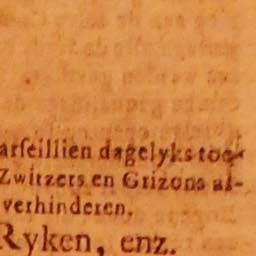 arſeillien dagelyks toe-
Zwitzers en Grizons al-
verhinderen.
Ryken, enz.